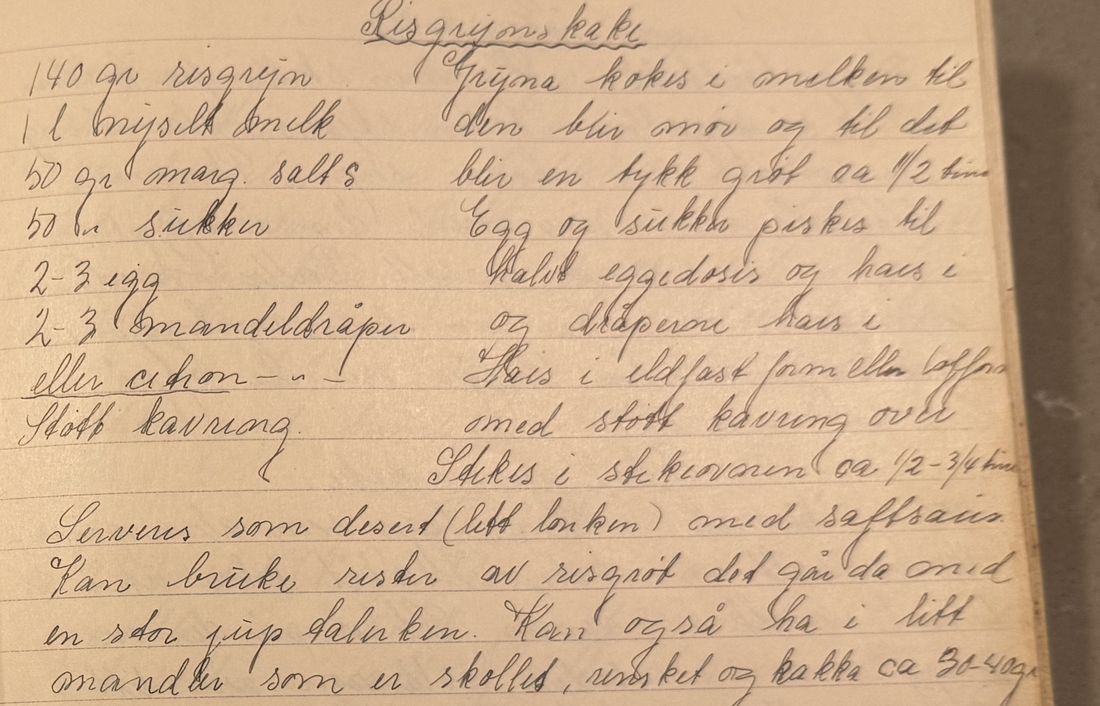 Risgrynskake
140 gr risgryn
1 l nysilt melk
50 gr marg. salt
50 " sukker
2-3 egg
2-3 mandeldråper
eller citron - " -
Støtt kavring.
Gryna kokes i melken til
den blir mør og til det
blir en tykk grøt ca 1 1/2 time
Egg og sukker piskes til
halvt eggedosis og haes i
og dråpene haes i
Haes i ildfast form eller
med støtt kavring over
Stekes i stekeovnen ca 1/2 - 3/4 time
Serveres som desert (litt lunken) med saftsaus.
Kan bruke rester av risgrøt det går da med
en stor jup talerken. Kan også ha i litt
mandler som er skollet, renset og hakka ca 30-40 gr